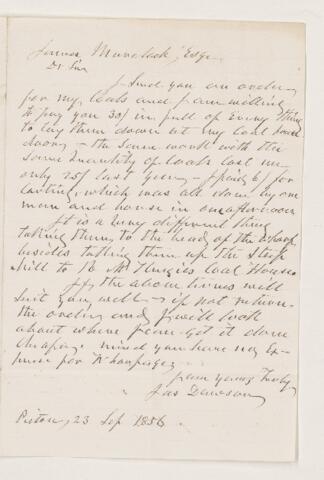 James Mursdack, Esqr
Dr Sir
I Send you an order
for my coals and I am willing
to pay you 30/ in full of every thing
to lay them down at my Coal house
door — the same work with the
same quantity of coals cost me
only 25/ last year — I paid 6/ for
carting, which was all done by one
man and horse in one afternoon
It is a very different thing
taking them to the head of the wharf
besides taking them up the Steep
hill to Coal House
If the above terms will
suit you well — if not return
the order and I will look
about where I can get it done
cheaper mind you have no Ex-
pense for
I am yours Truly
Jas Dawson
Pictou, 23 Sep 1856